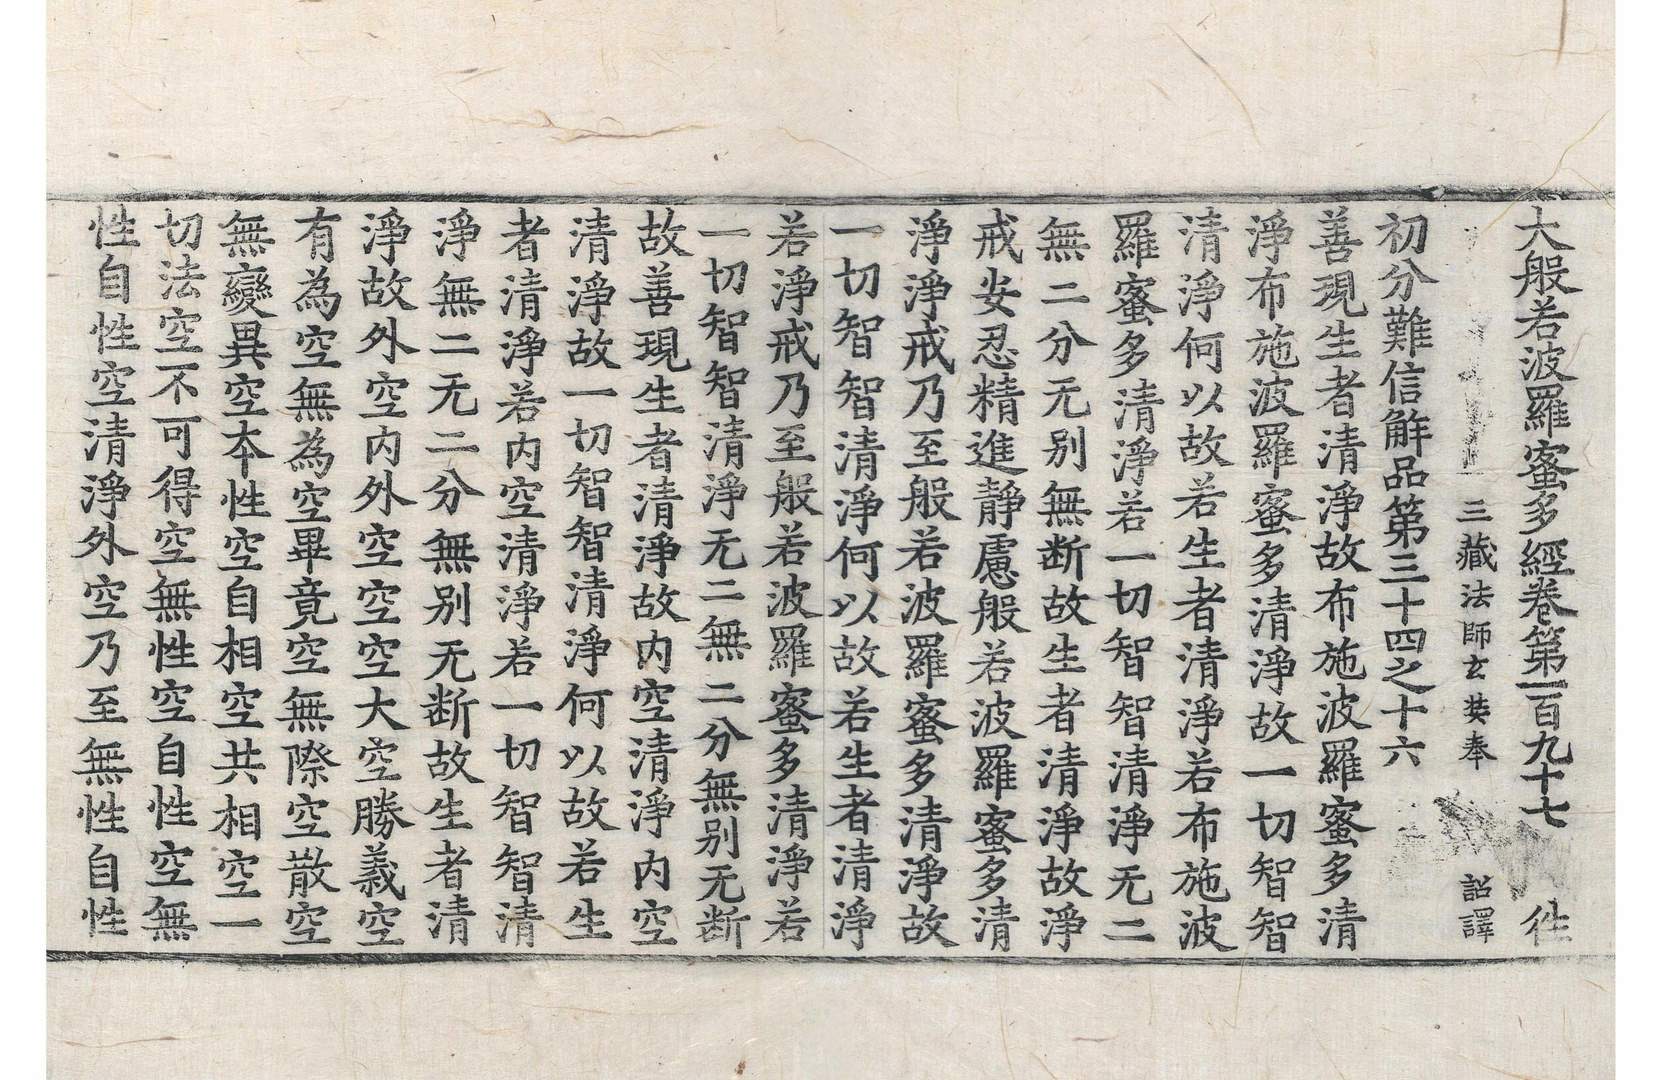 大般若波羅蜜多經卷第一百九十七 徃
三藏法師玄奘奉 詔譯
初分難信解品第三十四之十六
善現生者清淨故布施波羅蜜多清
淨布施波羅蜜多清淨故一切智智
清淨何以故若生者清淨若布施波
羅蜜多清淨若一切智智清淨无二
無二分无别無断故生者清淨故淨
戒安忍精進靜慮般若波羅蜜多清
淨淨戒乃至般若波羅蜜多清淨故
一切智智清淨何以故若生者清淨
若淨戒乃至般若波羅蜜多清淨若
一切智智清淨无二無二分無别无断
故善現生者清淨故内空清淨内空
清淨故一切智智清淨何以故若生
者清淨若内空清淨若一切智智清
淨無二无二分無别无断故生者清
淨故外空内外空空空大空勝義空
有為空無為空畢竟空無際空散空
無變異空本性空自相空共相空一
切法空不可得空無性空自性空無
性自性空清淨外空乃至無性自性